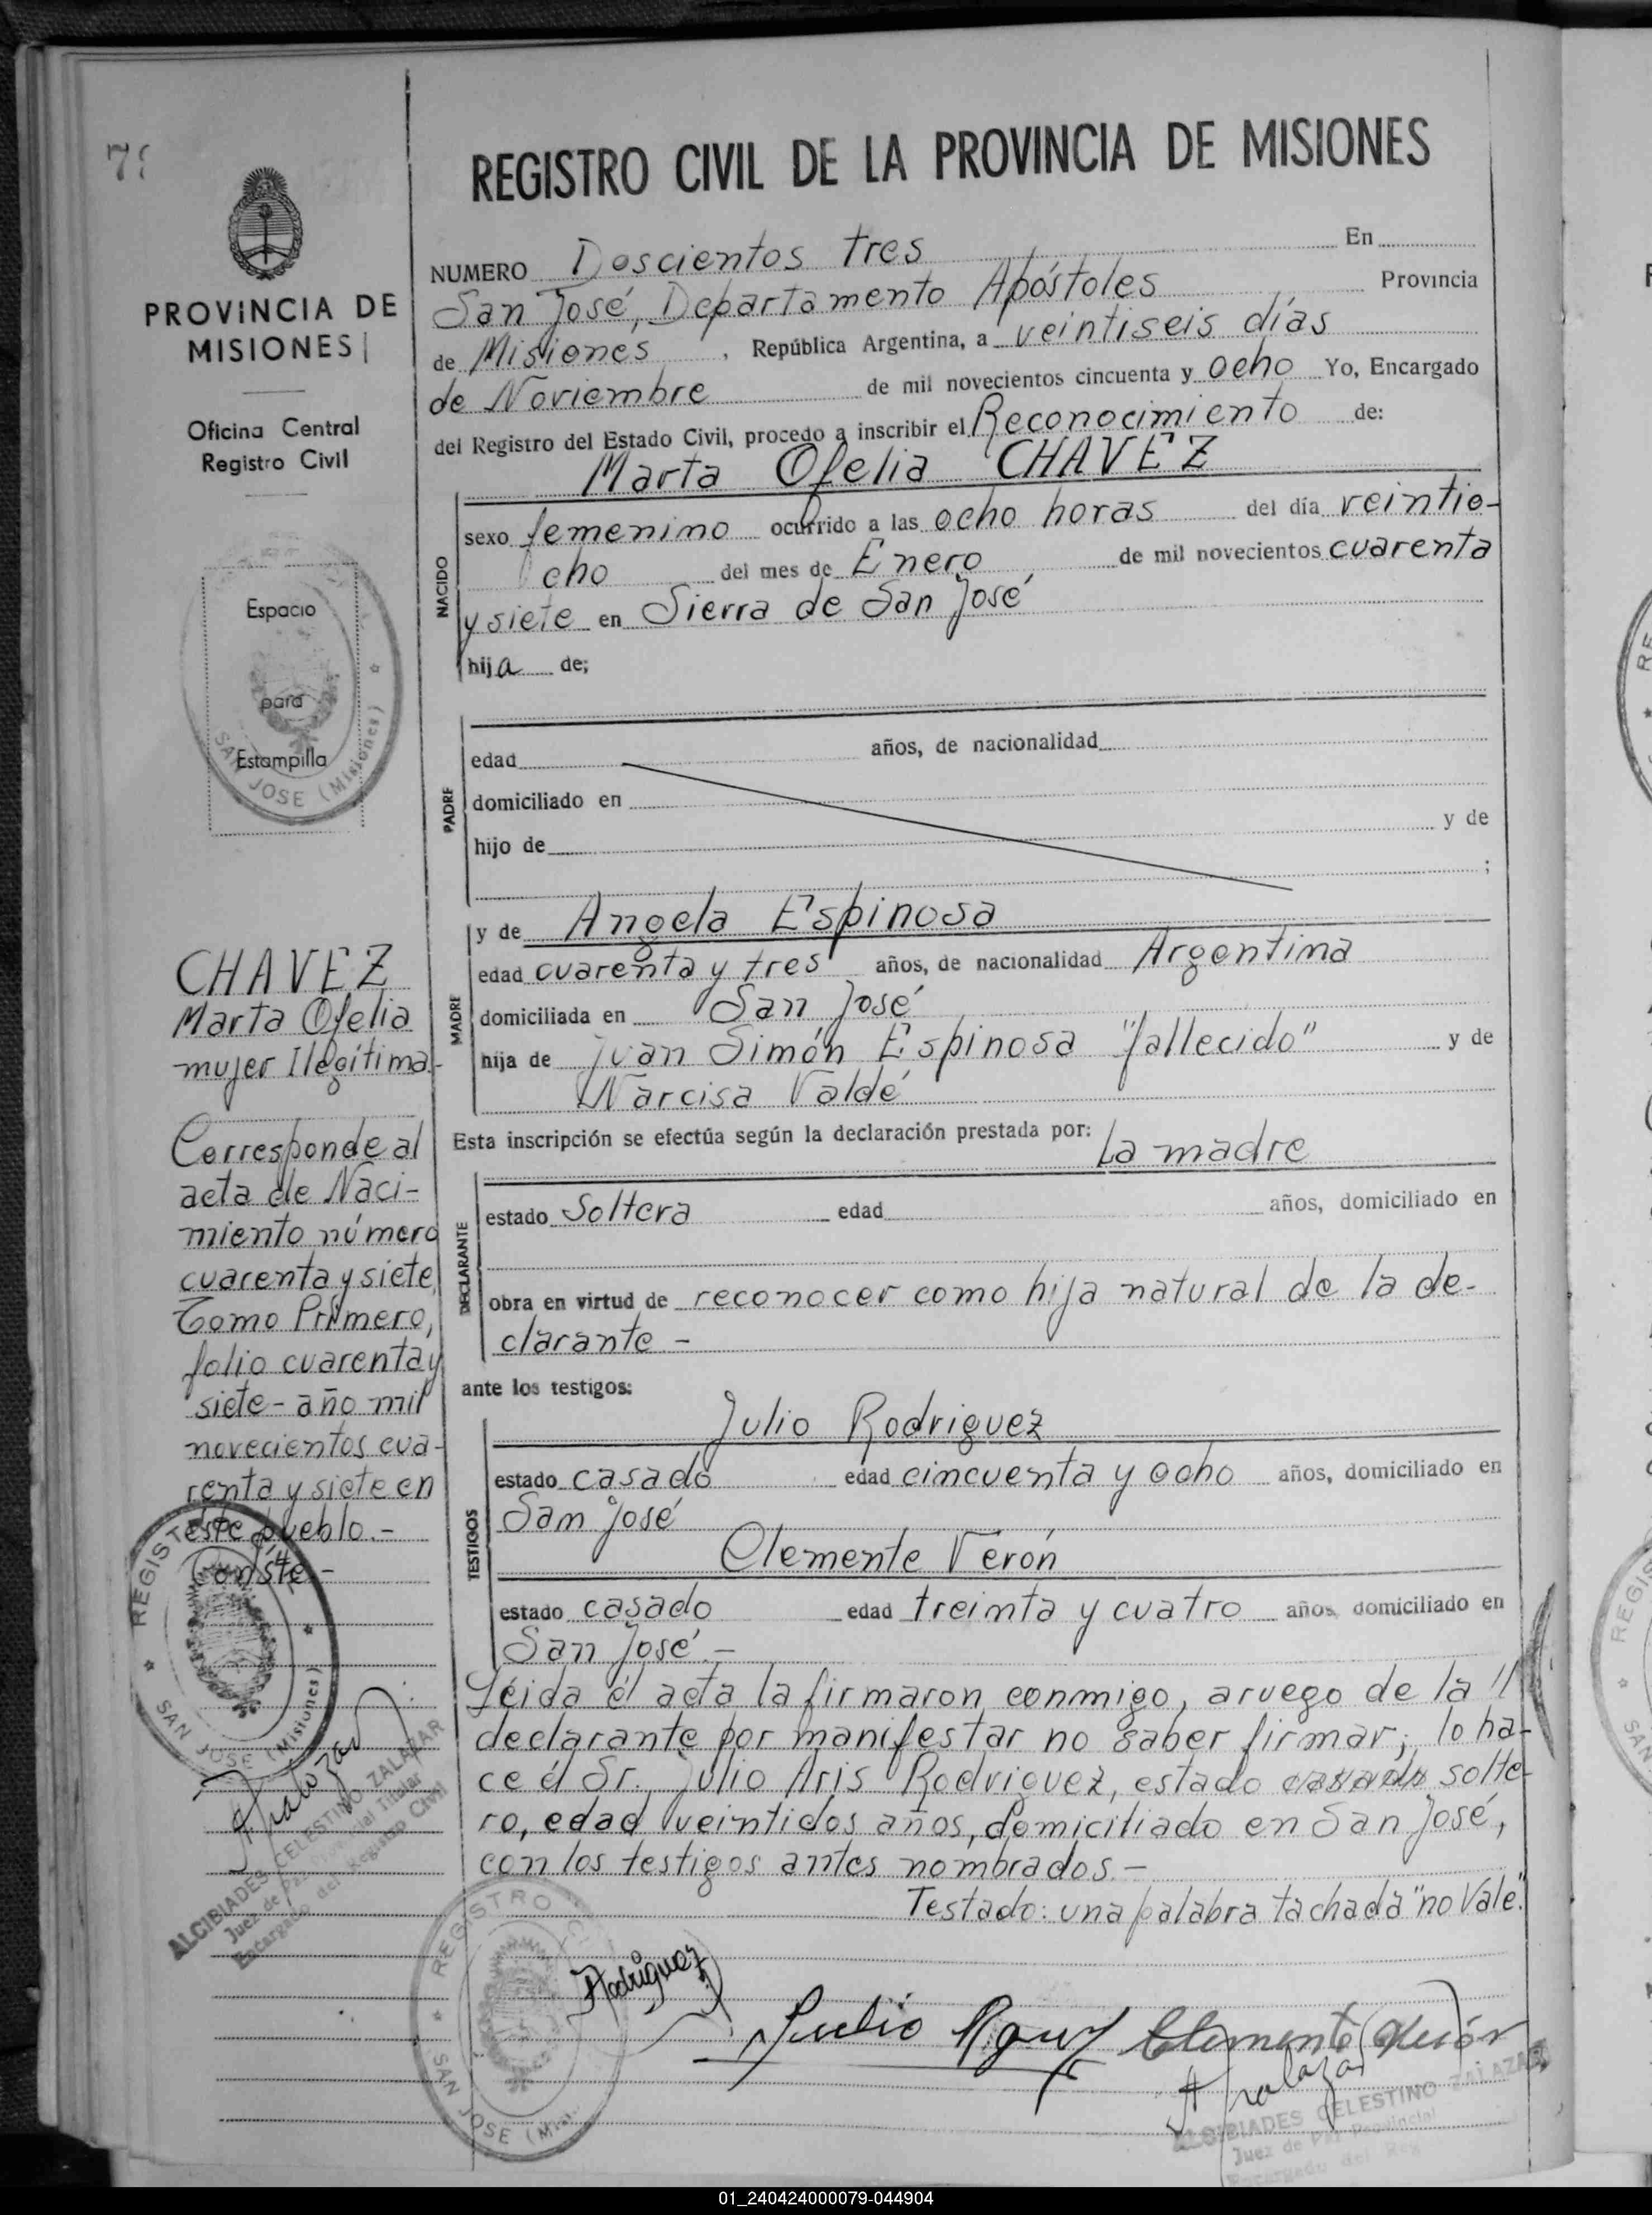 REGISTRO CIVIL DE LA PROVINCIA DE MISIONES
PROVINCIA DE
MISIONES
Oficina Central
Registro Civil
Espacio
para
Estampilla
SAN JOSE (Misiones)
CHAVEZ
Marta Ofelia
mujer Ilegítima.-
Corresponde al
acta de Naci-
miento número
cuarenta y siete,
Tomo Primero,
folio cuarenta y
siete - año mil
novecientos cua-
renta y siete en
este pueblo.-
Conste.-
REGISTRO CIVIL
SAN JOSE (Misiones)
ALCIBIADES CELESTINO ZALAZAR
Juez de Paz Provincial Titular
Encargado del Registro Civil
NUMERO Doscientos tres En
San José, Departamento Apóstoles Provincia
de Misiones, República Argentina, a veintiseis días
de Noviembre de mil novecientos cincuenta y ocho Yo, Encargado
del Registro del Estado Civil, procedo a inscribir el Reconocimiento de:
Marta Ofelia CHAVEZ
NACIDO
sexo femenino ocurrido a las ocho horas del día veintio-
cho del mes de Enero de mil novecientos cuarenta
y siete en Sierra de San José
hija de;
PADRE
edad años, de nacionalidad
domiciliado en
hijo de y de
;
MADRE
y de Angela Espinosa
edad cuarenta y tres años, de nacionalidad Argentina
domiciliada en San José
hija de Juan Simón Espinosa "fallecido" y de
Narcisa Valdé
Esta inscripción se efectúa según la declaración prestada por: La madre
DECLARANTE
estado Soltera edad años, domiciliado en
obra en virtud de reconocer como hija natural de la de-
clarante -
ante los testigos:
TESTIGOS
Julio Rodriguez
estado casado edad cincuenta y ocho años, domiciliado en
San José
Clemente Verón
estado casado edad treinta y cuatro años, domiciliado en
San José.-
Leida el acta la firmaron conmigo, a ruego de la //
declarante por manifestar no saber firmar, lo ha-
ce el Sr. Julio Aris Rodriguez, estado casado solte-
ro, edad veintidos años, domiciliado en San José,
con los testigos antes nombrados.-
Testado: una palabra tachada "no Vale".
REGISTRO
SAN JOSE
Rodriguez
Julio
Clemente Verón
ALCIBIADES CELESTINO ZALAZAR
Juez de Paz Provincial
Encargado del Reg
01_240424000079-044904